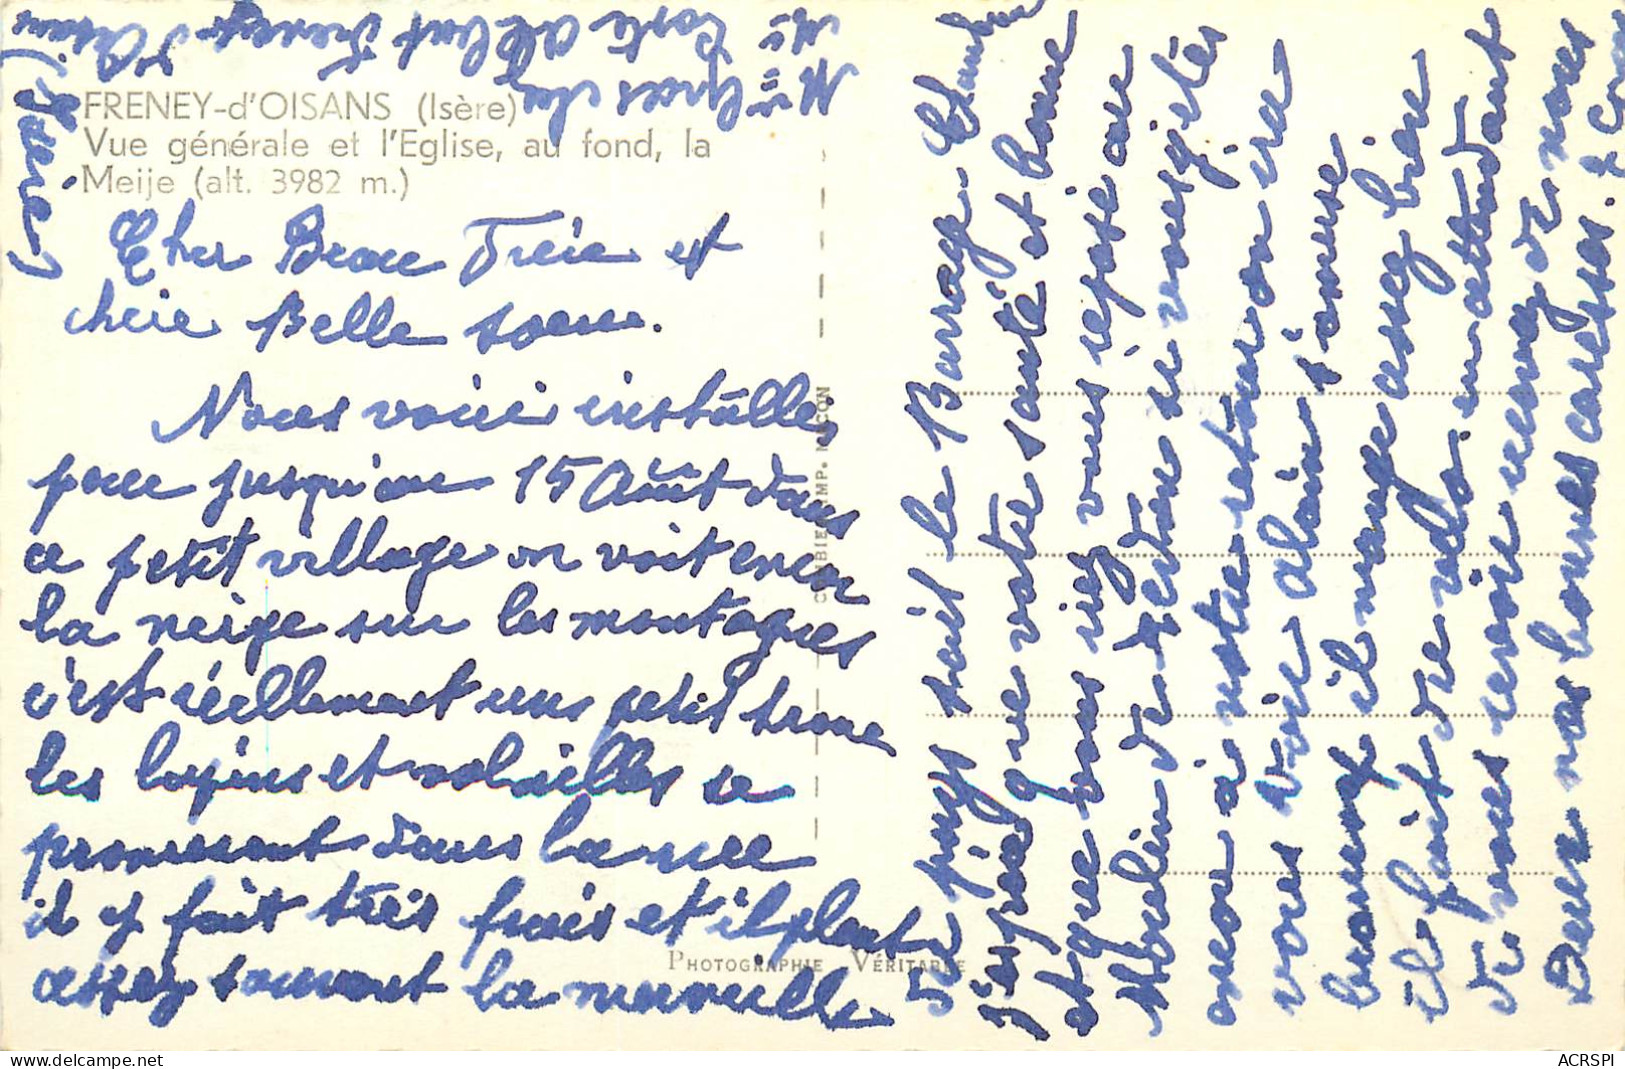 FRENEY-d'OISANS (Isère)
Vue générale et l'Eglise, au fond, la
Meije (alt. 3982 m.)
Cher Beau Frère et
chère Belle soeur.
Nous voici installés
pour jusqu'au 15 Août dans
ce petit village on voit encore
la neige sur les montagnes
c'est réellement un petit trou
les lapins et volailles se
promenent dans la rue
il y fait très frais et il pleut
assez souvent la merveille
du pays soit le Barrage Chambon
J'espère que votre santé est bonne
et que vous irez vous reposé au
Moulin de Bertin se
on a à notre retour on ira
vous voir alain s'amuse
beaucoup il mange assez bien
il fait du vélo. en attendant
de vous revoir recevez de nous
Deux nos bonnes caresses.
Mme
Mr Coste Albert Freney d'Oisans
(Isère)
COMBIER IMP. MACON
PHOTOGRAPHIE VÉRITABLE
ACRSPI